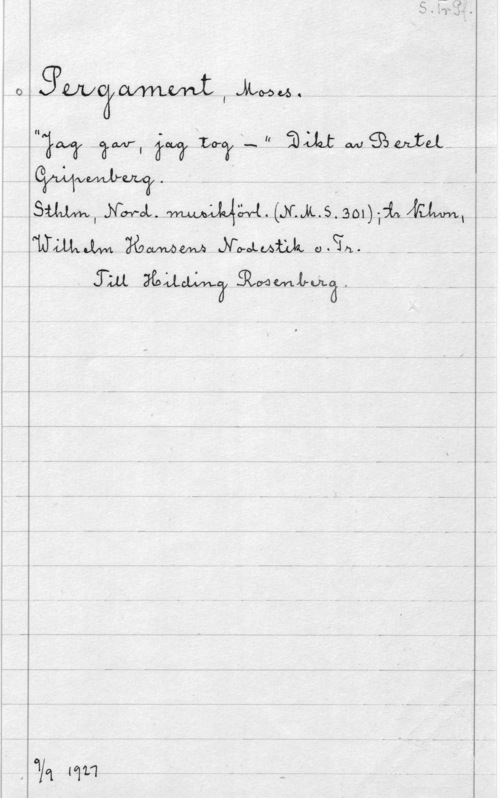 S. Tr. Pf.
Pergament, Moses.
"Jag gav, jag tog –" Dikt av Bertel
Gripenberg.
Sthlm, Nord. musikförl. (N.M.S. 301); tr. Khvn,
Wilhelm Hansens Nodestik o. Tr.
Till Hilding Rosenberg.
9/9 1927